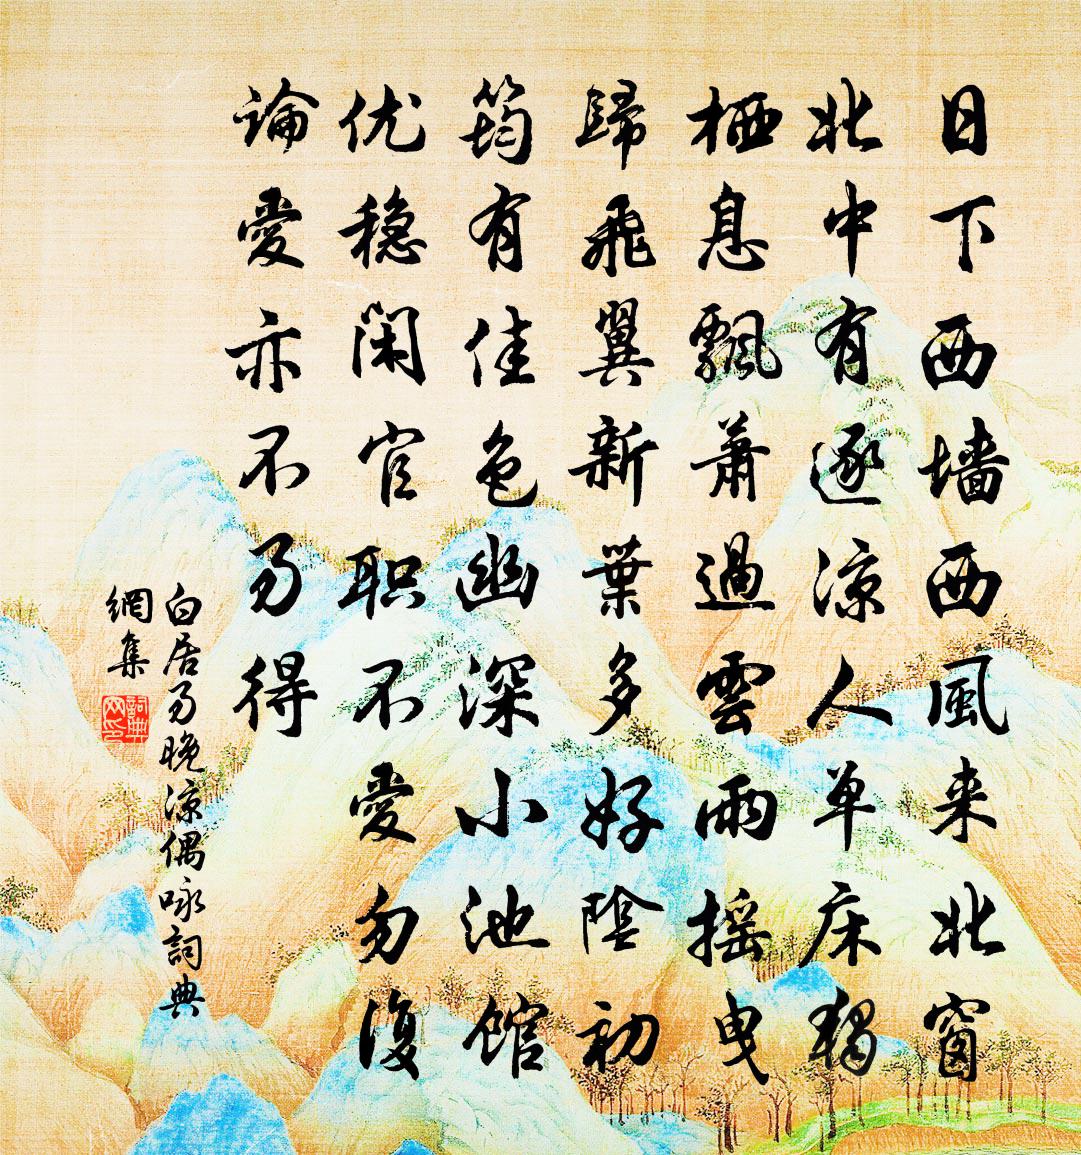 日下西墙西風来北窗
北中有逐涼人单床獨
栖息飄蕭過雲雨摇曳
歸飛翼新葉多好陰初
筠有佳色幽深小池馆
优稳闲官职不愛勿復
論愛亦不易得
白居易晚涼偶咏詞典
網集
詞典网印